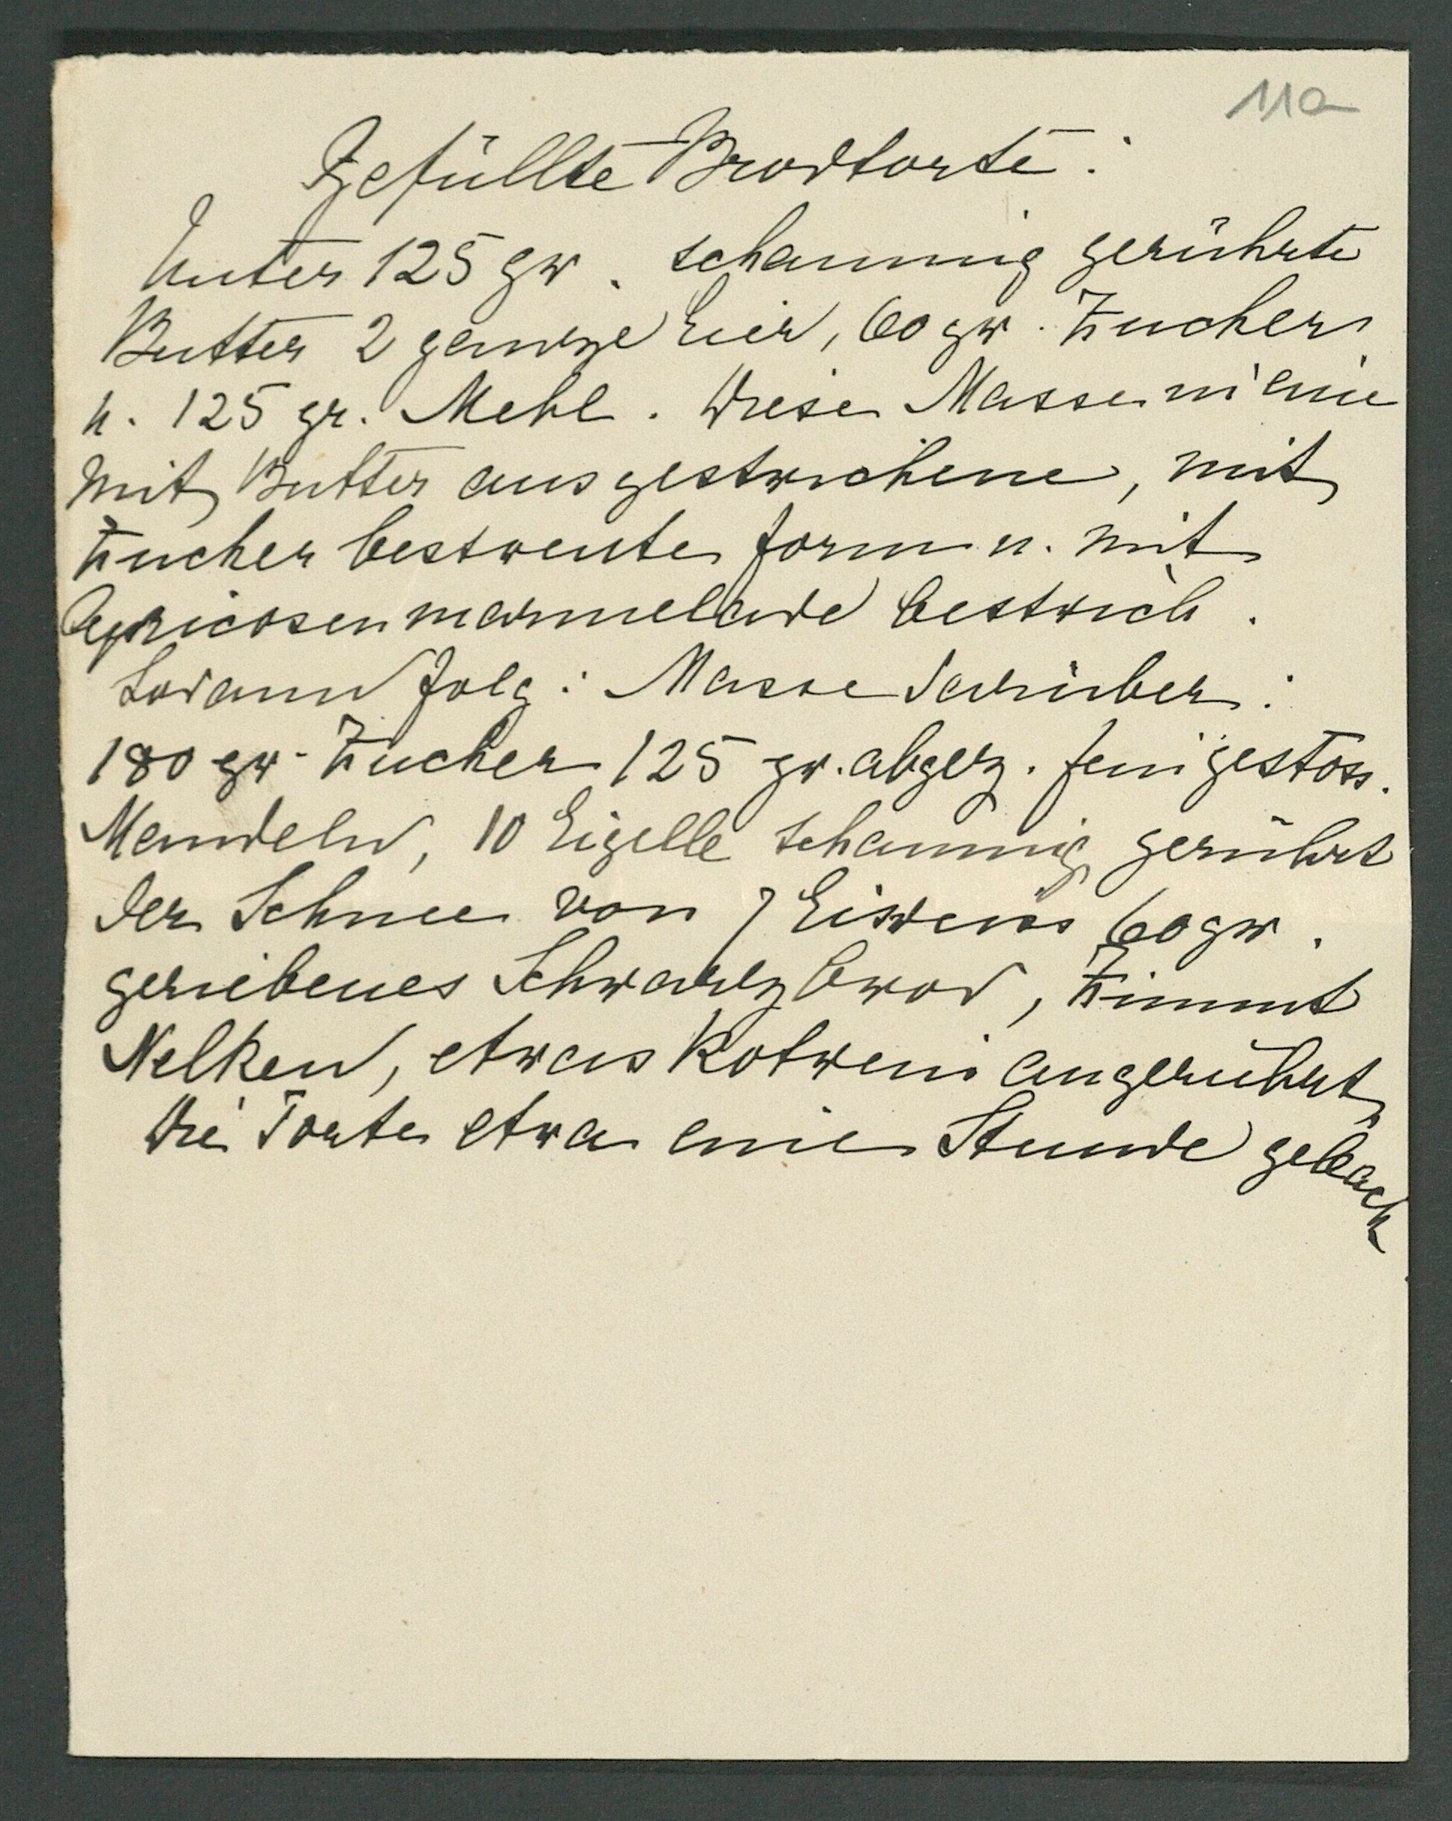 11a
Gefüllte Brodtorte:
Unter 125 gr. schaumig gerührte
Butter 2 ganze Eier, 60 gr. Zucker
u. 125 gr. Mehl. Diese Masse in eine
mit Butter ausgestrichene, mit
Zucker bestreute Form u. mit
Apricosenmarmelade bestrich.
Sodann folg: Masse darüber:
180 gr. Zucker 125 gr. abgez. fein gestoss.
Mandeln, 10 Eigelle schaumig gerührt
der Schnee von 7 Eiweiss 60 gr.
geriebenes Schwarzbrod, Zimmt
Nelken, etwas Rotwein angerührt,
Die Torte etwa eine Stunde geback